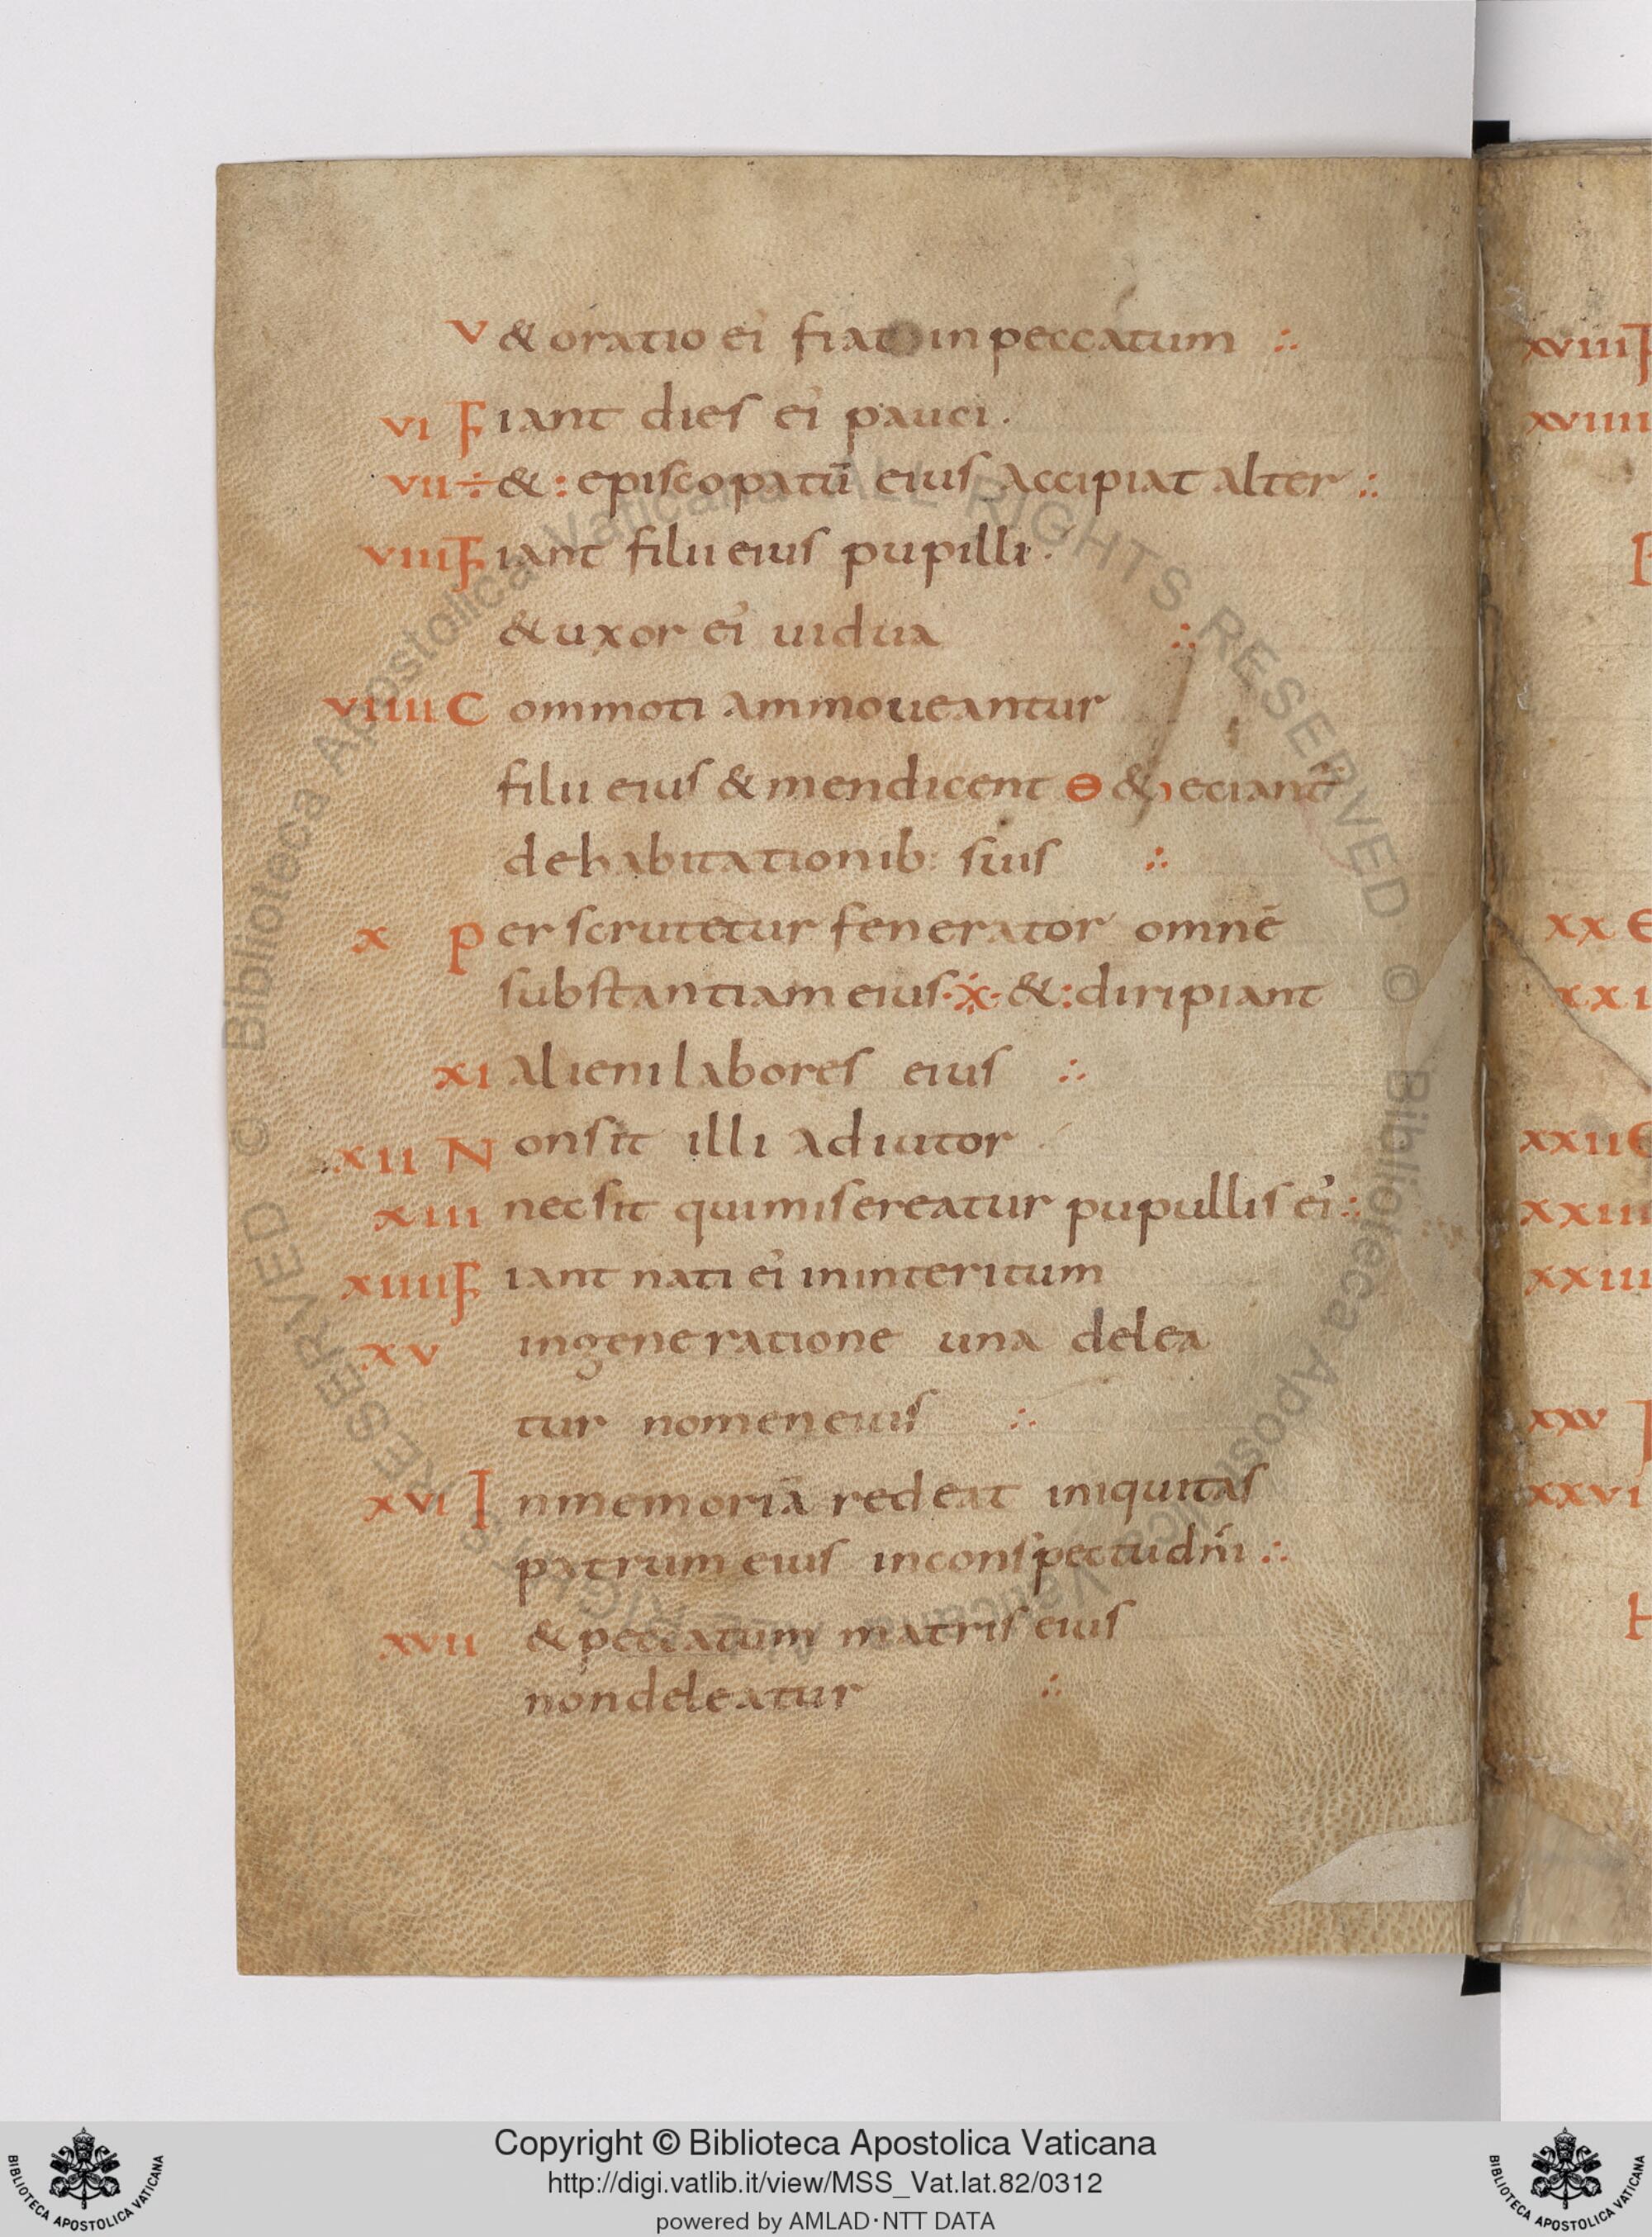 v & oratio ei' fiat in peccatum ∴
vi Fiant dies ei' pauci .
vii ÷ & : episcopatū eius accipiat alter ∴
viii Fiant filii eius pupilli .
& uxor ei' uidua ∴
viiii Commoti ammoueantur
filii eius & mendicent Θ & eiciant'
dehabitationib: suis ∴
x Per scrutetur fenerator omnē
substantiam eius ·※· & : diripiant
xi alieni labores eius ∴
xii Nonsit illi adiutor
xiii necsit quimisereatur pupullis ei' ∴
xiiii Fiant nati ei' ininteritum
xv ingeneratione una delea
tur nomen eius ∴
xvi Inmemoriā redeat iniquitas
patrum eius inconspectudn̄i ∴
xvii & peccatum matris eius
nondeleatur ∴
xviii F
xviiii
xx E
xxi
xxii E
xxiii
xxiiii
xxv
xxvi
© Biblioteca Apostolica Vaticana ALL RIGHTS RESERVED
© Biblioteca Apostolica Vaticana ALL RIGHTS RESERVED
Copyright © Biblioteca Apostolica Vaticana
http://digi.vatlib.it/view/MSS_Vat.lat.82/0312
powered by AMLAD·NTT DATA
BIBLIOTECA APOSTOLICA VATICANA
BIBLIOTECA APOSTOLICA VATICANA